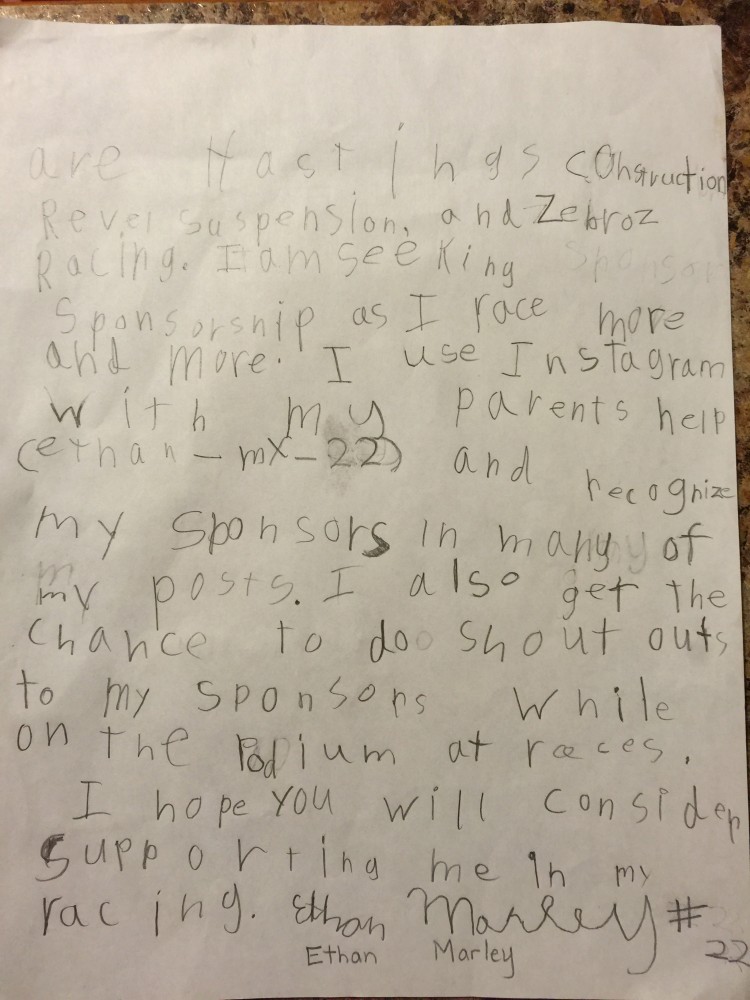 are Hastings Construction
Revel Suspension, and Zebroz
Racing. I am seeking Sponsor
Sponsorship as I race more
and more. I use Instagram
with my parents help
(ethan-mx-22) and recognize
my Sponsors in many of
my posts. I also get the
Chance to do shout outs
to my sponsors while
on the Podium at races.
I hope you will consider
Supporting me in my
racing. Ethan Marley #
22
Ethan Marley